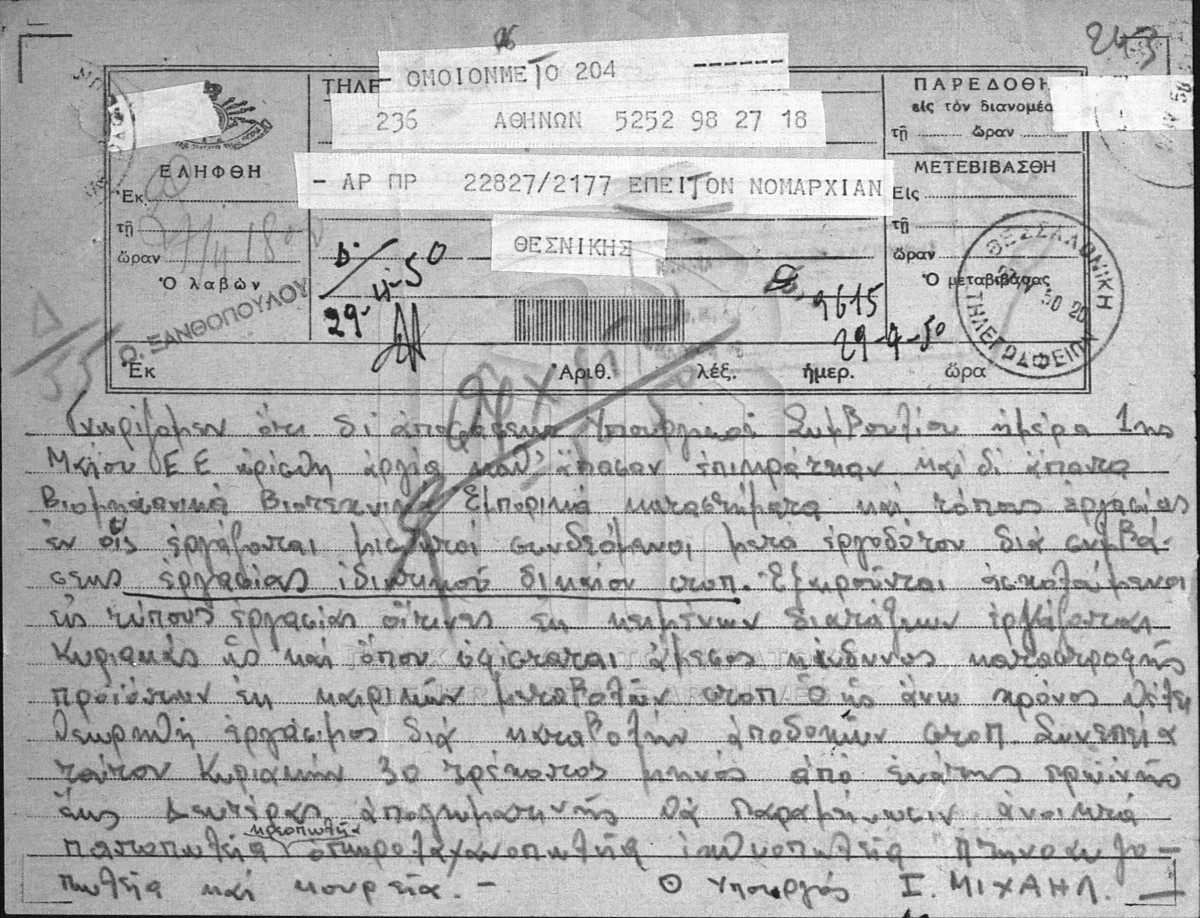 243
ΤΗΛΕ ΟΜΟΙΟΝΜΕΤΟ 204 ------
236 ΑΘΗΝΩΝ 5252 98 27 18
- ΑΡ ΠΡ 22827/2177 ΕΠΕΙΓΟΝ ΝΟΜΑΡΧΙΑΝ
ΘΕΣΝΙΚΗΣ
ΕΛΗΦΘΗ
Ἐκ
τῇ
ὥραν
Ὁ λαβών
Ο. ΞΑΝΘΟΠΟΥΛΟΥ
27/4 18
29-4-50
ΠΑΡΕΔΟΘΗ
εἰς τὸν διανομέα
τῇ ὥραν
ΜΕΤΕΒΙΒΑΣΘΗ
Εἰς
τῇ
ὥραν
Ὁ μεταβιβάσας
ΘΕΣΣΑΛΟΝΙΚΗ
ΤΗΛΕΓΡΑΦΕΙΟΝ
9615
29-4-50
Ἐκ Ἀριθ. λέξ. ἡμερ. ὥρα
Γνωρίζομεν ὅτι δι ἀποφάσεως Υπουργικοῦ Συμβουλίου ἡμέρα 1ης
Μαΐου Ε Ε ὡρίσθη ἀργία καθ' ἅπασαν ἐπικράτειαν καί δι ἅπαντα
Βιομηχανικά Βιοτεχνικά Ἐμπορικά καταστήματα καί τόπους ἐργασίας
ἐν οἷς ἐργάζονται μισθωτοί συνδεόμενοι μετά ἐργοδότου διά συμβά-
σεως ἐργασίας ἰδιωτικοῦ δικαίου στοπ. Ἐξαιροῦνται ἀσχολούμενοι
εἰς τόπους ἐργασίας οἵτινες ἐκ κειμένων διατάξεων ἐργάζονται
Κυριακάς ὡς καί ὅπου ὑφίσταται ἄμεσος κίνδυνος καταστροφῆς
προϊόντων ἐκ καιρικῶν μεταβολῶν στοπ Ὁ ὡς ἄνω χρόνος θέλει
θεωρηθῆ ἐργάσιμος διά καταβολήν ἀποδοχῶν στοπ Συνεπεία
τούτου Κυριακήν 30 τρέχοντος μηνός ἀπό ἐνάτης πρωϊνῆς
ἕως Δευτέρας ἀπογευματινῆς θά παραμείνωσιν ἀνοικτά
παντοπωλεῖα κρεοπωλεῖα ὀπωρολαχανοπωλεῖα ἰχθυοπωλεῖα πτηναυγο-
πωλεῖα καί κουρεῖα. -  Ὁ Υπουργός Ι. ΜΙΧΑΗΛ.